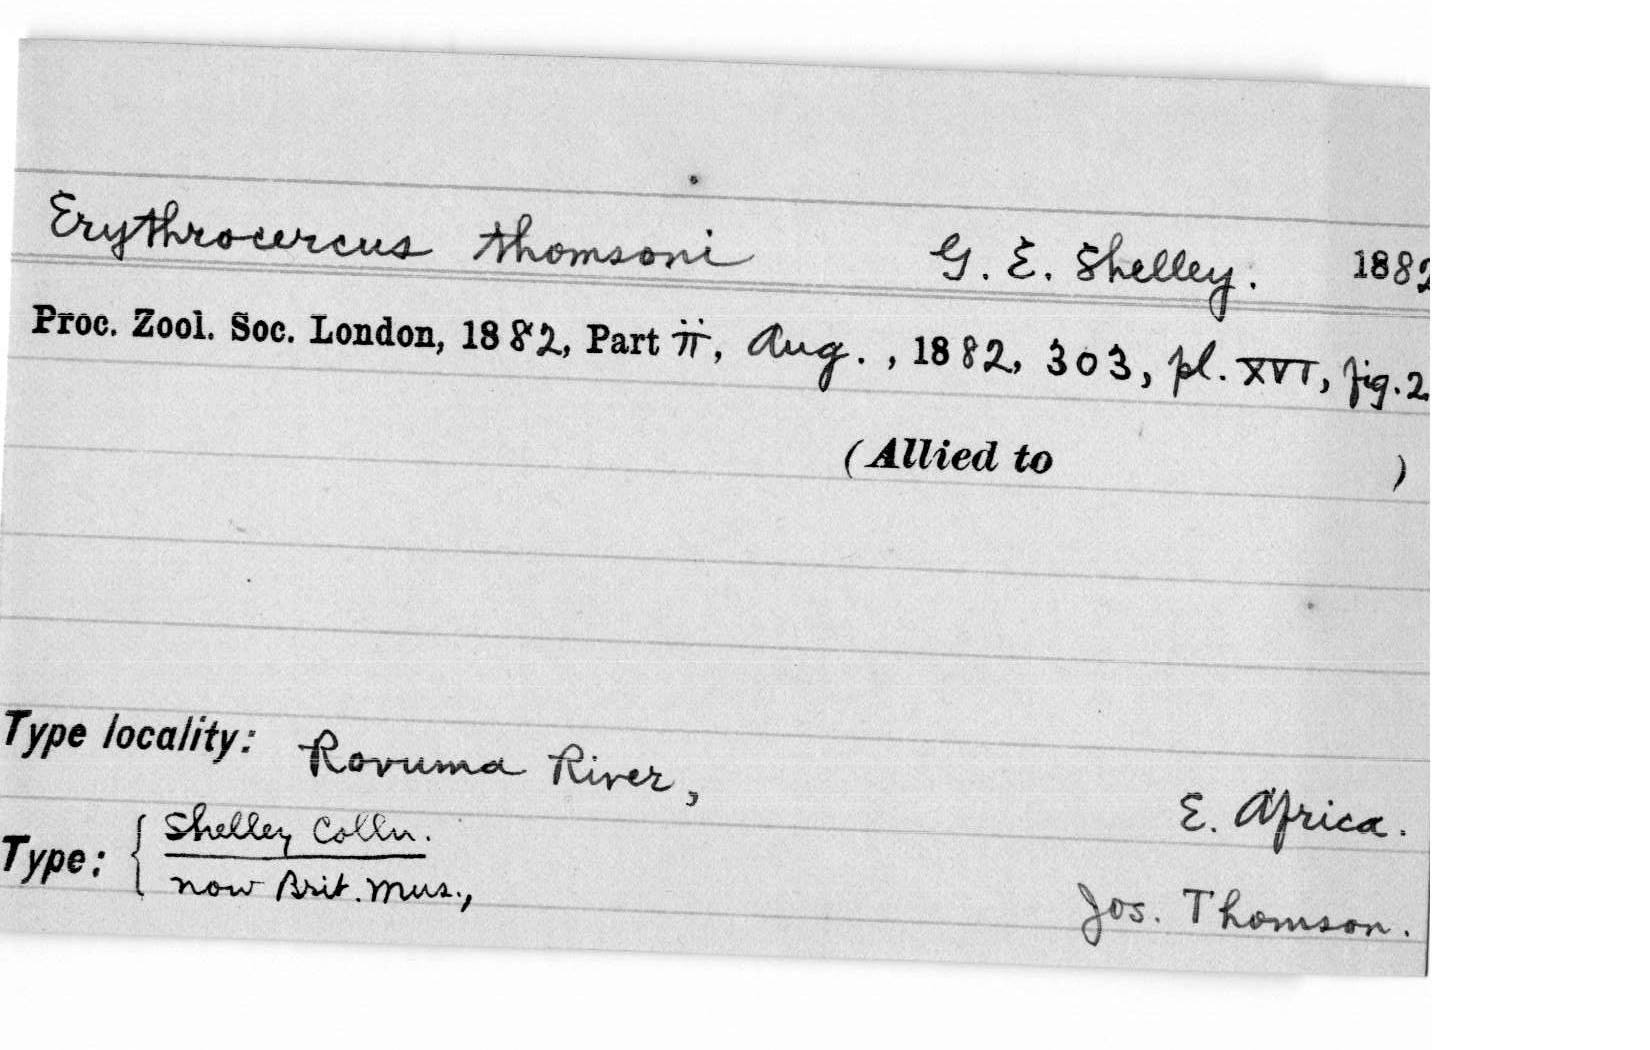 Erythrocercus thomsoni G. E. Shelley. 1882
Proc. Zool. Soc. London, 1882, Part ii, Aug., 1882, 303, pl. XVI, fig. 2
(Allied to )
Type locality: Rovuma River, E. Africa.
Type: { Shelley Colln.
now Brit. Mus., Jos. Thomson.